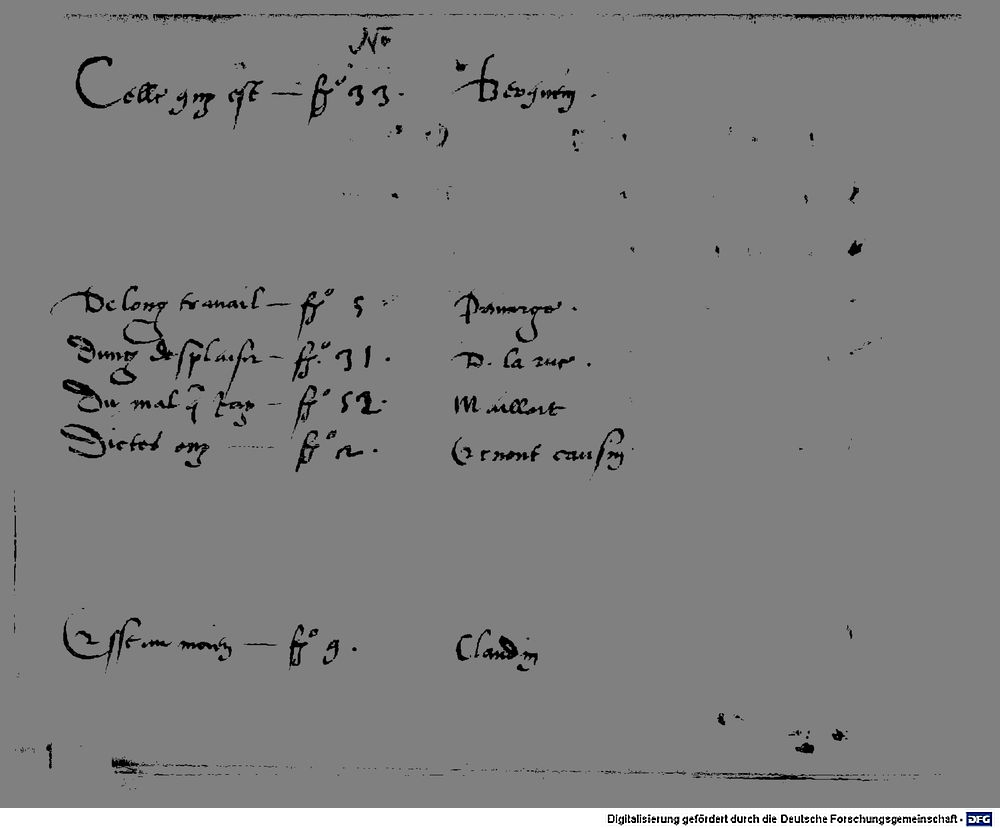 No
Celle quy est — ffo 33. Berquin.
De long travail — ffo 5 Pamerge.
Dung desplaisir — ffo 31. D. la rue.
Du mal q̃ Jay — ffo 52. Maillart
Dictes ony — ffo 2. Ernoul causin
Esse au moien — ffo 9. Claudin
1
Digitalisierung gefördert durch die Deutsche Forschungsgemeinschaft - DFG